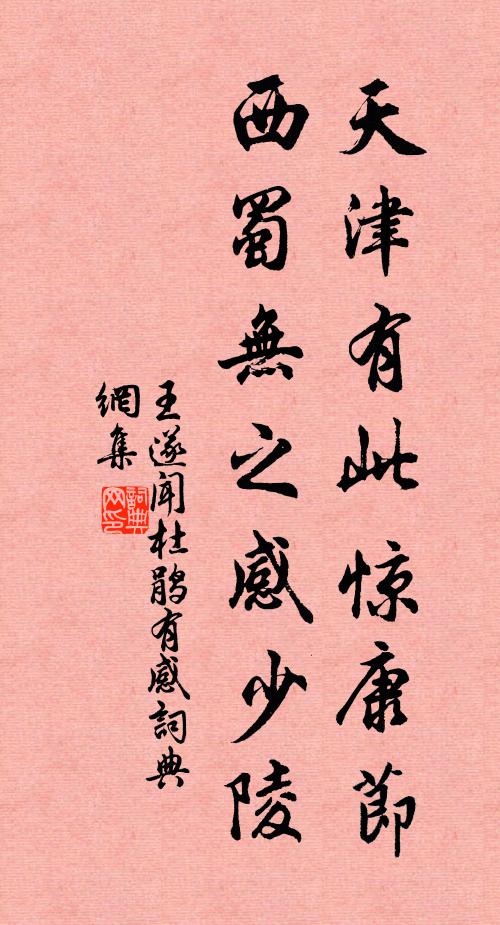 天津有此惊康節
西蜀無之感少陵
王遂闻杜鹃有感詞典
網集
詞典
网印